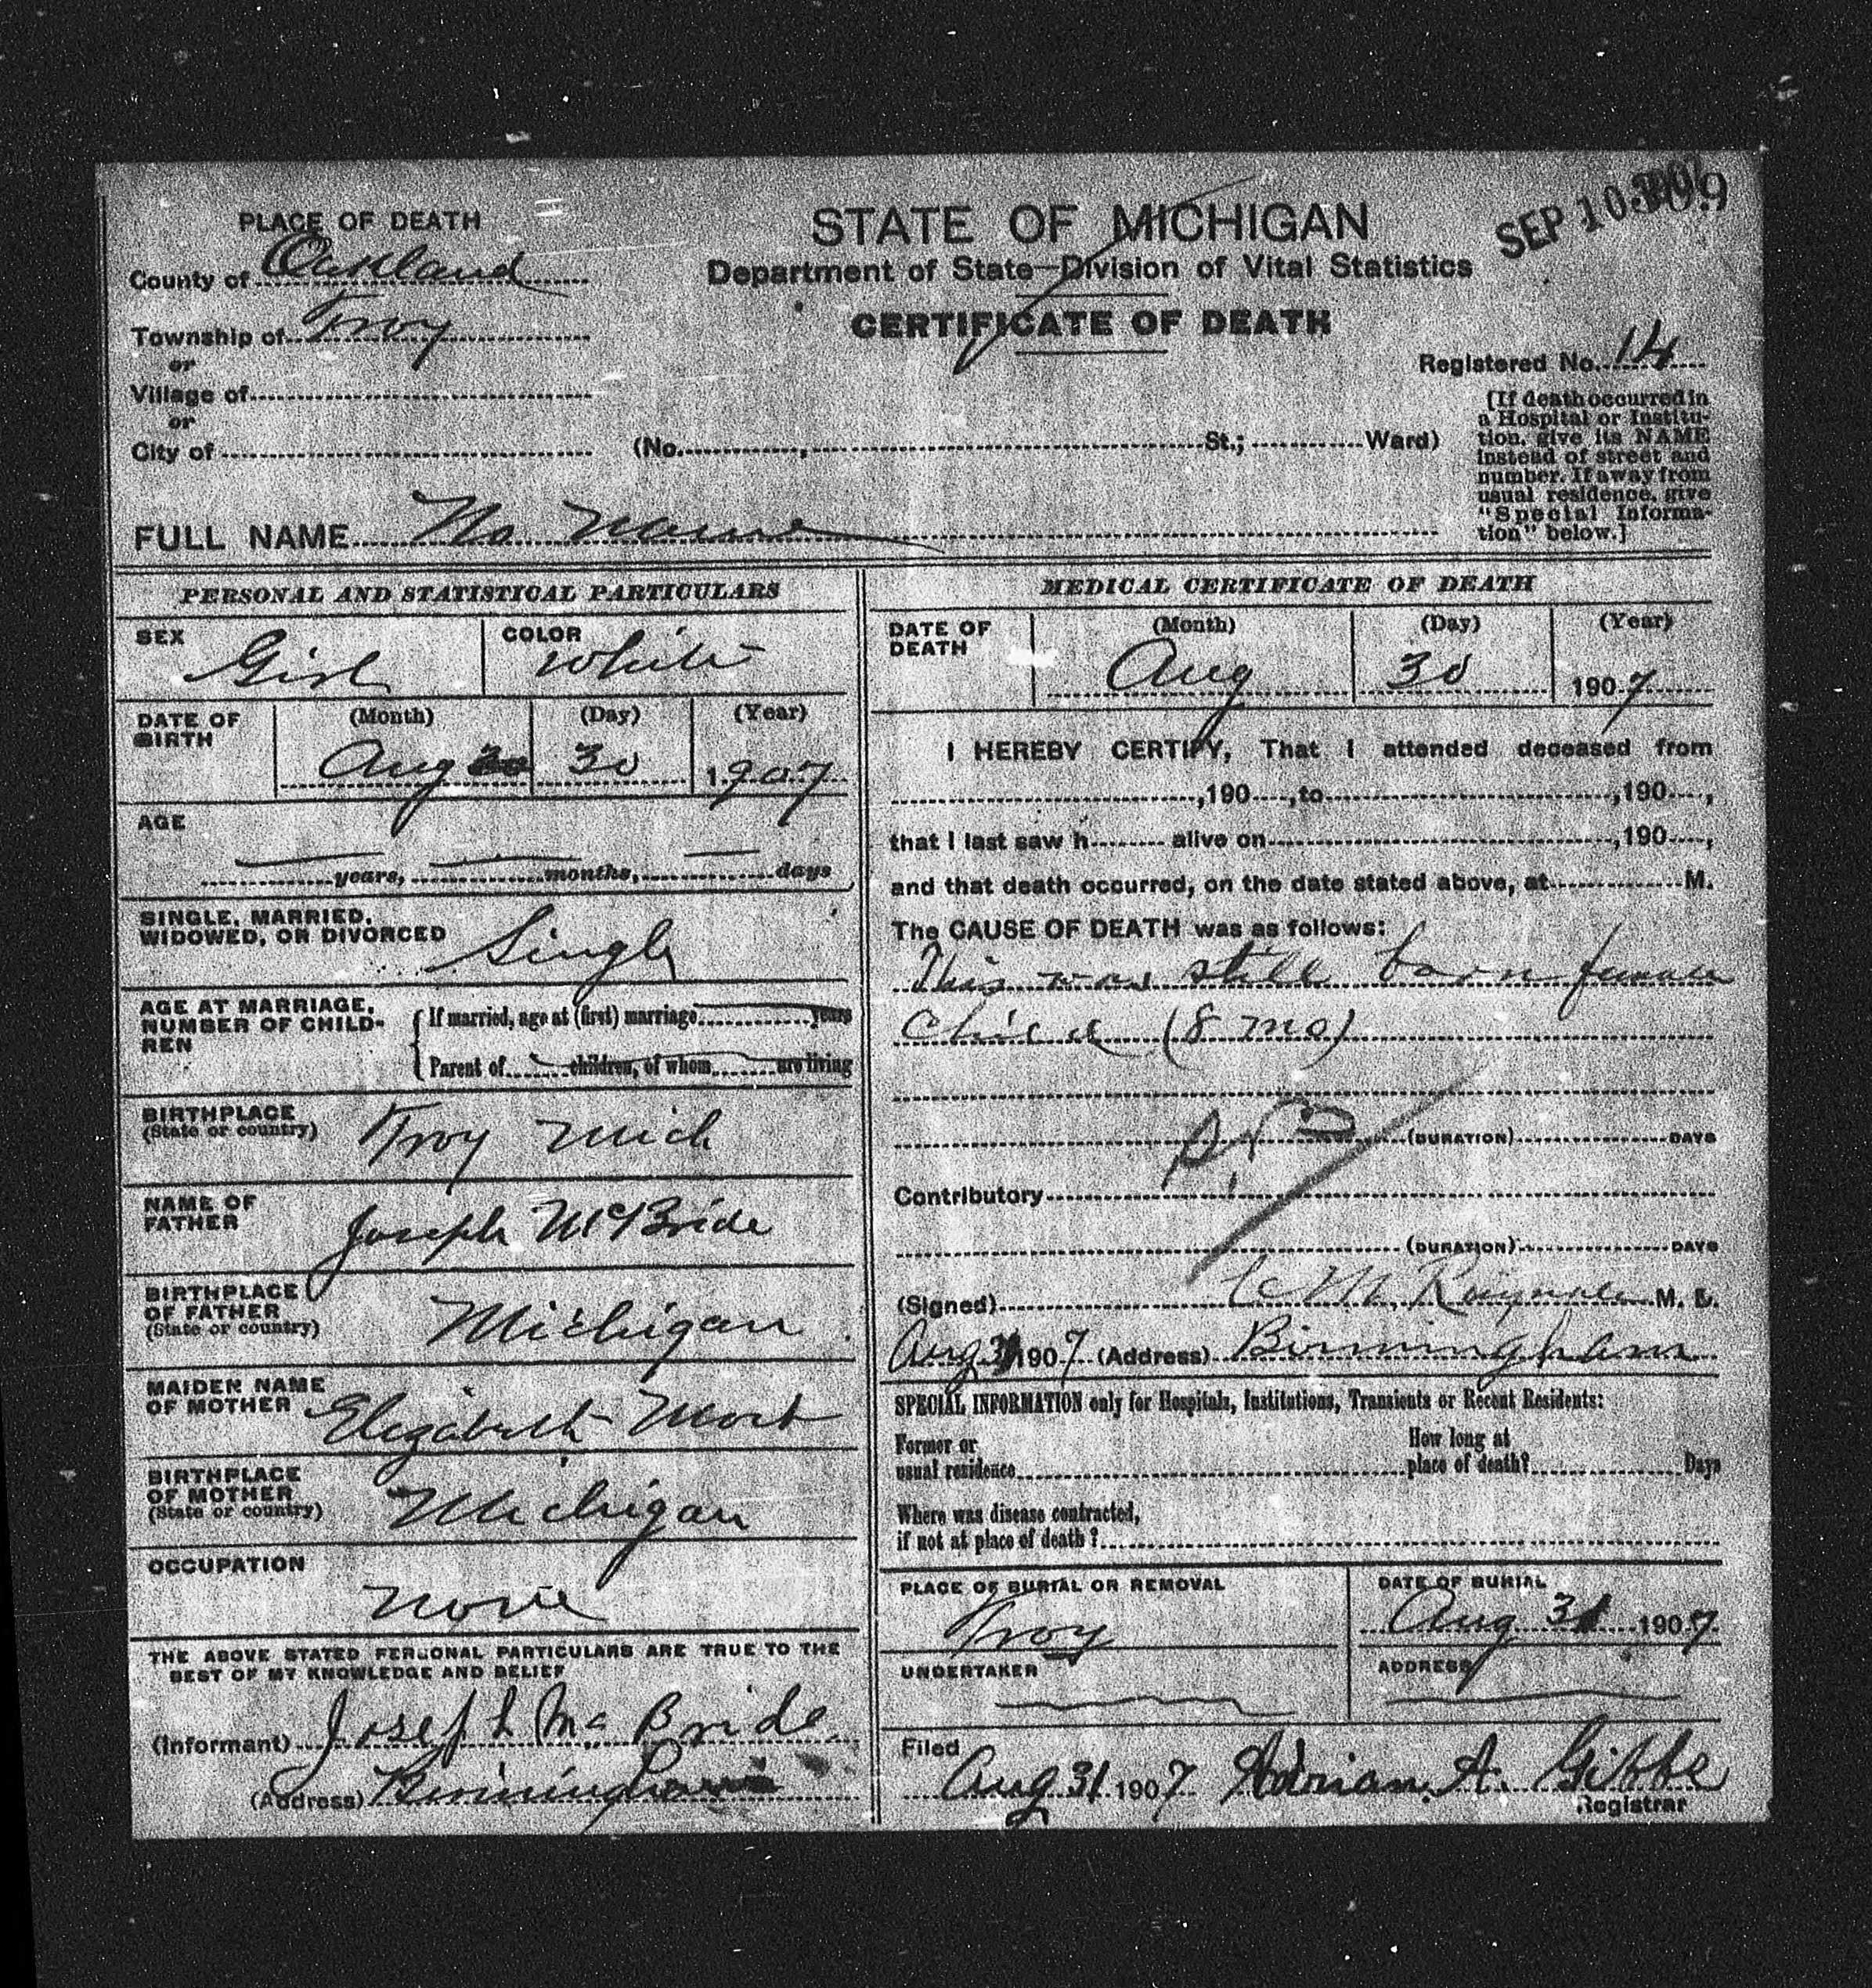 PLACE OF DEATH
County of Oakland
Township of Troy
or
Village of
or
City of
STATE OF MICHIGAN
Department of State—Division of Vital Statistics
CERTIFICATE OF DEATH
SEP 10
Registered No. 14
(No. , St.; Ward)
[If death occurred in
a Hospital or Institu-
tion, give its NAME
instead of street and
number. If away from
usual residence, give
"Special Informa-
tion" below.]
FULL NAME No Name
PERSONAL AND STATISTICAL PARTICULARS
SEX Girl
COLOR White
DATE OF BIRTH
(Month) (Day) (Year)
Aug 30 1907
AGE
years, months, days
SINGLE, MARRIED,
WIDOWED, OR DIVORCED Single
AGE AT MARRIAGE,
NUMBER OF CHILD-
REN
If married, age at (first) marriage years
Parent of children, of whom are living
BIRTHPLACE
(State or country) Troy Mich
NAME OF
FATHER Joseph McBride
BIRTHPLACE
OF FATHER
(State or country) Michigan
MAIDEN NAME
OF MOTHER Elizabeth
BIRTHPLACE
OF MOTHER
(State or country) Michigan
OCCUPATION
None
THE ABOVE STATED PERSONAL PARTICULARS ARE TRUE TO THE
BEST OF MY KNOWLEDGE AND BELIEF
(Informant) Joseph McBride
(Address) Birmingham
MEDICAL CERTIFICATE OF DEATH
DATE OF
DEATH
(Month) (Day) (Year)
Aug 30 1907
I HEREBY CERTIFY, That I attended deceased from
,190 ,to ,190 ,
that I last saw h alive on ,190 ,
and that death occurred, on the date stated above, at M.
The CAUSE OF DEATH was as follows:
This was still born female
Child (8 mo)
(DURATION) DAYS
Contributory
(DURATION) DAYS
(Signed) M. D.
Aug 31 1907 (Address) Birmingham
SPECIAL INFORMATION only for Hospitals, Institutions, Transients or Recent Residents:
Former or
usual residence
How long at
place of death? Days
Where was disease contracted,
if not at place of death?
PLACE OF BURIAL OR REMOVAL
Troy
DATE OF BURIAL
Aug 31 1907
UNDERTAKER
ADDRESS
Filed
Aug 31 1907 Adrian A. Gibbs
Registrar